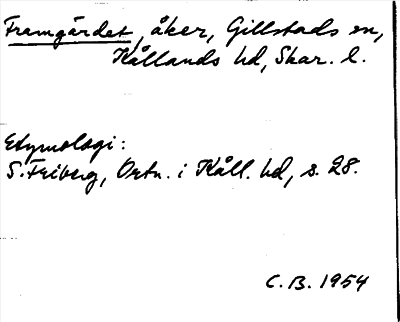 Framgärdet, åker, Gillstads sn,
Kållands hd, Skar. l.
Etymologi:
S. Friberg, Ortn. i Kåll. hd, s. 28.
C. B. 1954